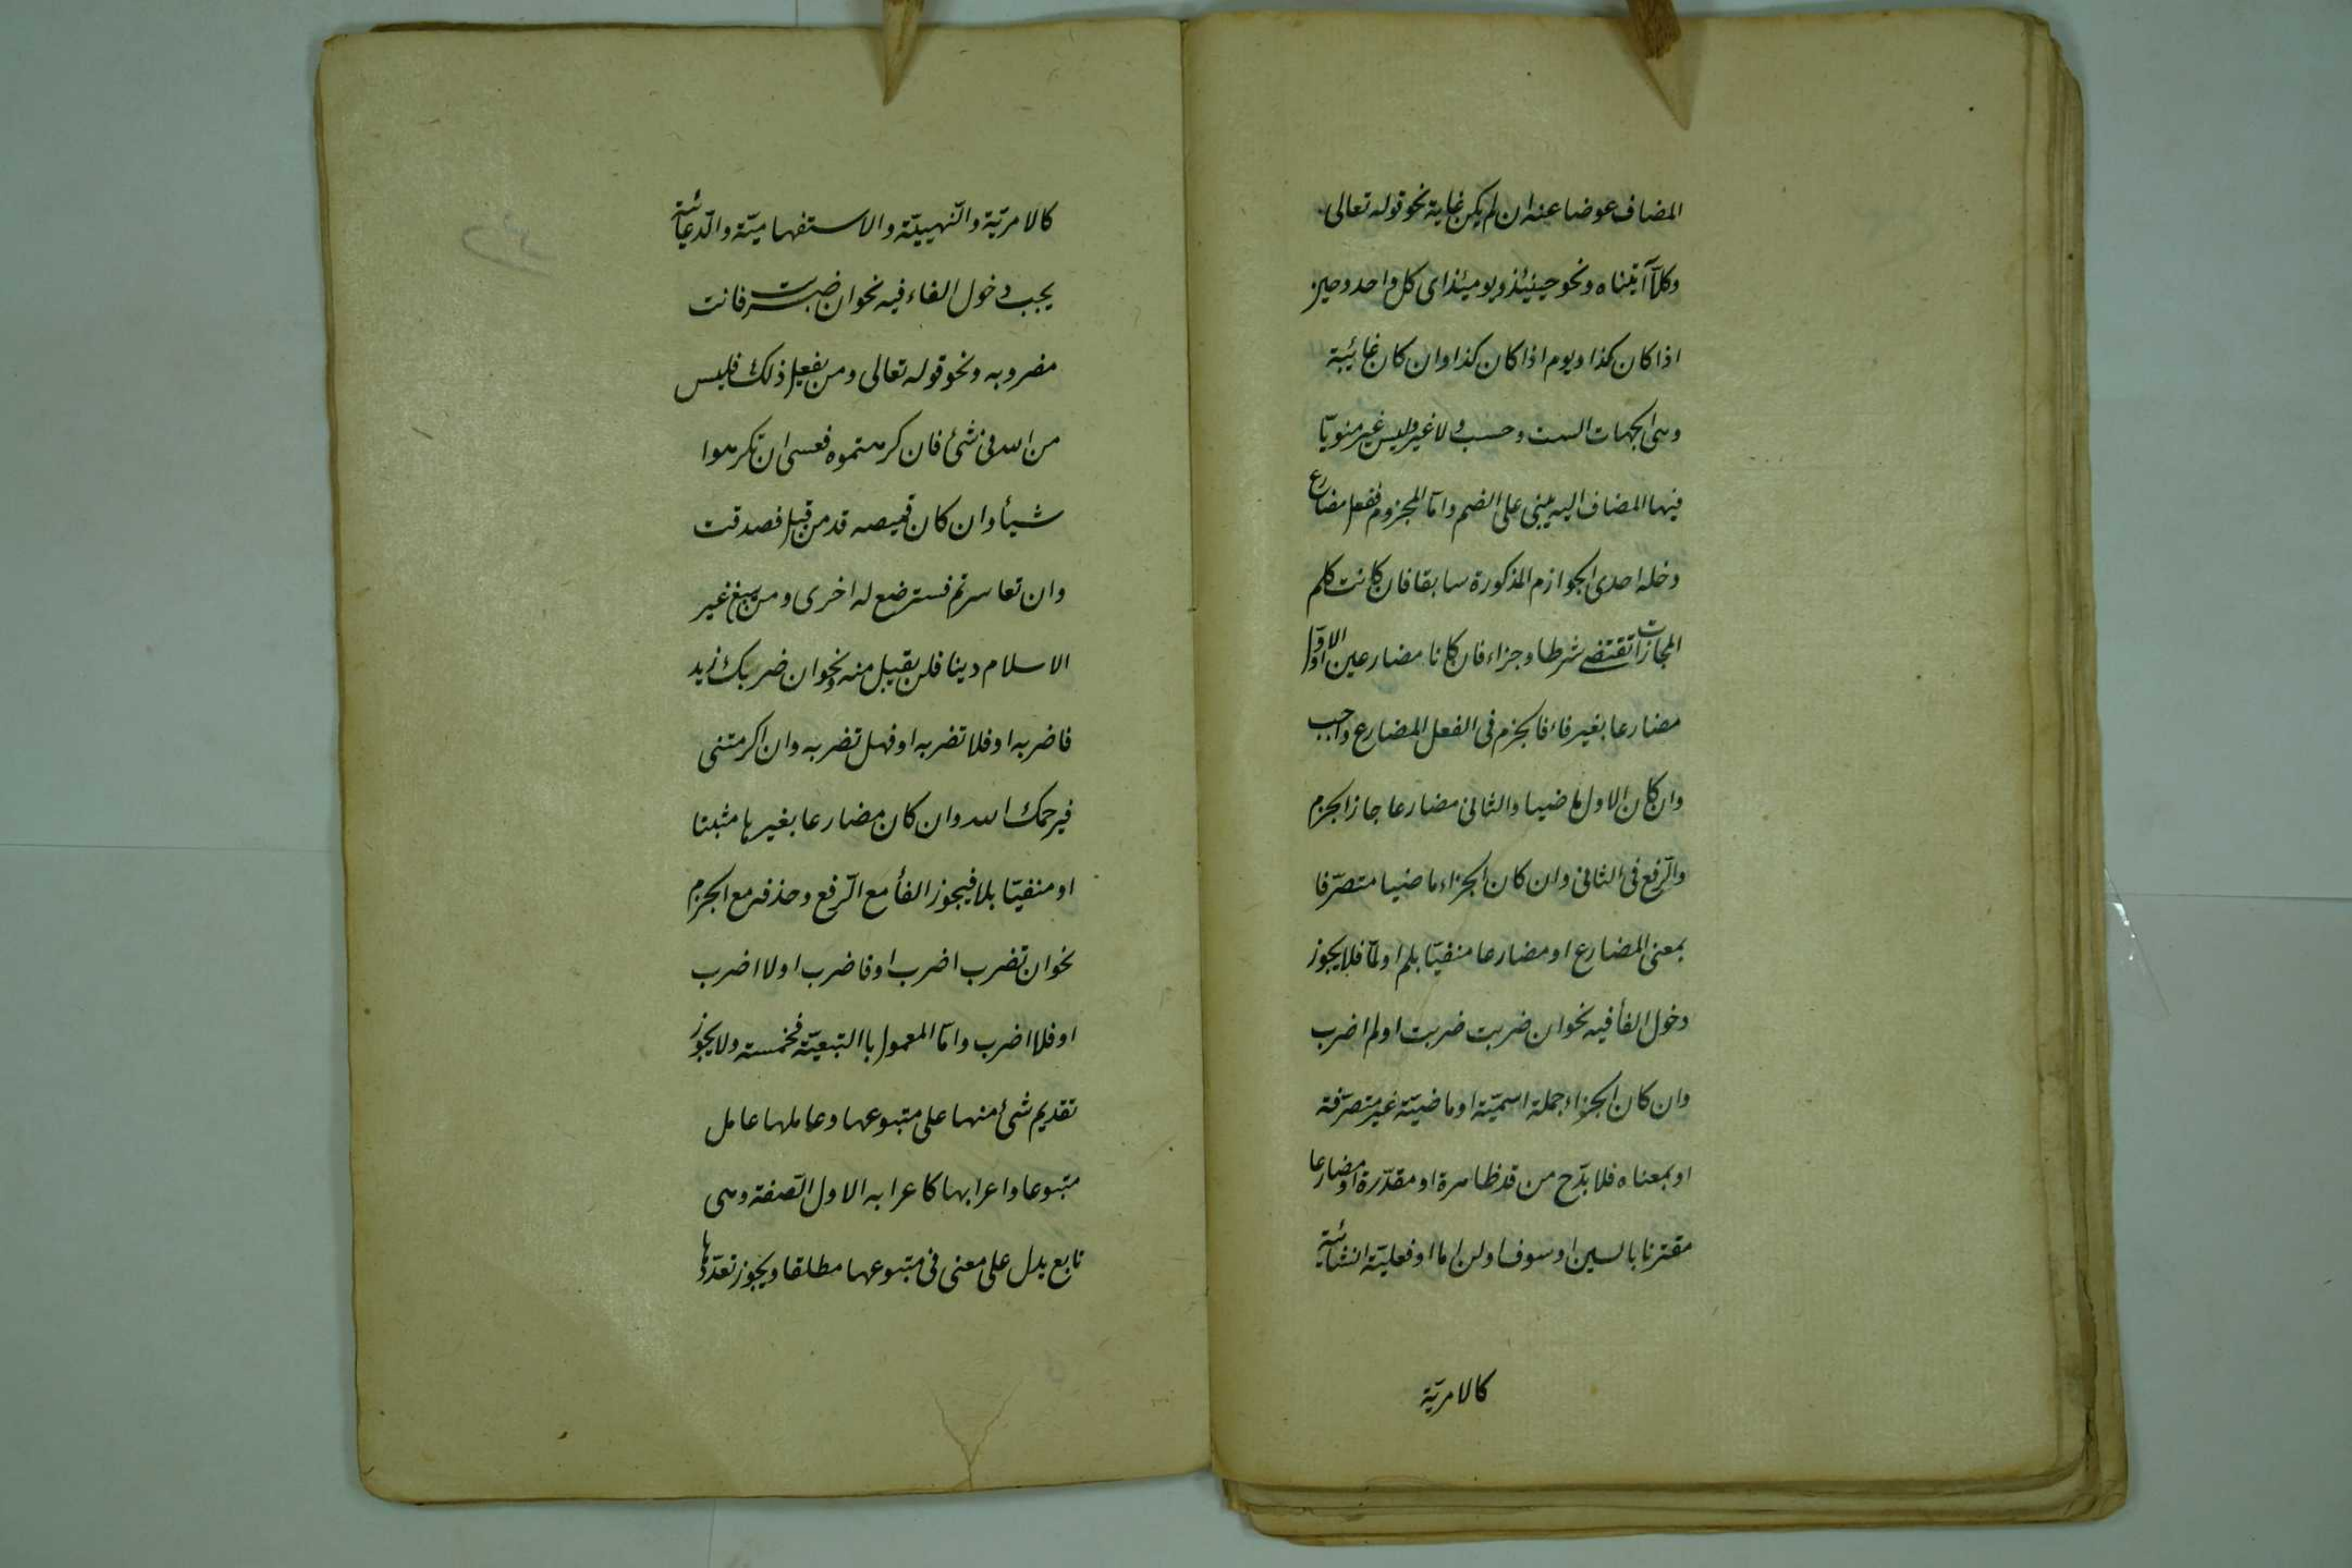 المضاف عوضا عنه ان لم يكن غاية نحو قوله تعالى
وكلّا آتيناه ونحو حينئذ ويومئذ اى كل واحد وحين
اذا كان كذا ويوم اذا كان كذا وان كان غائية
وهى الجهات الست وحسب ولا غير وليس غير منويّا
فيها المضاف اليه يبنى على الضم وامّا المجزوم ففعل مضارع
دخله احدى الجوازم المذكورة سابقا فان كانت كلم
المجازات تقتضى شرطا وجزاء فان كانا مضارعين او الاول
مضارعا بغير فاء فالجزم فى الفعل المضارع واجب
وان كان الاول ماضيا والثانى مضارعا جاز الجزم
والرّفع فى الثانى وان كان الجزاء ماضيا متصرّفا
بمعنى المضارع او مضارعا منفيّا بلم او لمّا فلا يجوز
دخول الفأ فيه نحو ان ضربت ضربت او لم اضرب
وان كان الجزاء جملة اسميّة او ماضيّة غير متصرّفة
او بمعناه فلا بدّ ح من قد ظاهرة او مقدّرة او مضارعا
مقترنا بالسين او سوف او لن او ما او فعليّة انشائية
كالامريّة
كالامريّة والنّهييّة والاستفهاميّة والدّعائية
يجب دخول الفاء فيه نحو ان ضربت فانت
مضروبه ونحو قوله تعالى ومن يفعل ذلك فليس
من الله فى شئ فان كرهتموه فعسى ان تكرهوا
شيأ وان كان قميصه قد من قبل فصدقت
وان تعاسرتم فسترضع له اخرى ومن يبتغ غير
الاسلام دينا فلن يقبل منه ونحو ان ضربك زيد
فاضربه او فلا تضربه او فهل تضربه وان اكرمتنى
فيرحمك الله وان كان مضارعا بغيرها مثبتا
او منفيّا بلا فيجوز الفأ مع الرّفع وحذفه مع الجزم
نحو ان تضرب اضرب او فاضرب او لا اضرب
او فلا اضرب وامّا المعمول باالتبعيّة فخمسة ولا يجوز
تقديم شئ منها على متبوعها وعاملها عامل
متبوعها واعرابها كاعرابه الاول الصّفة وهى
تابع يدل على معنى فى متبوعها مطلقا ويجوز تعدّدها